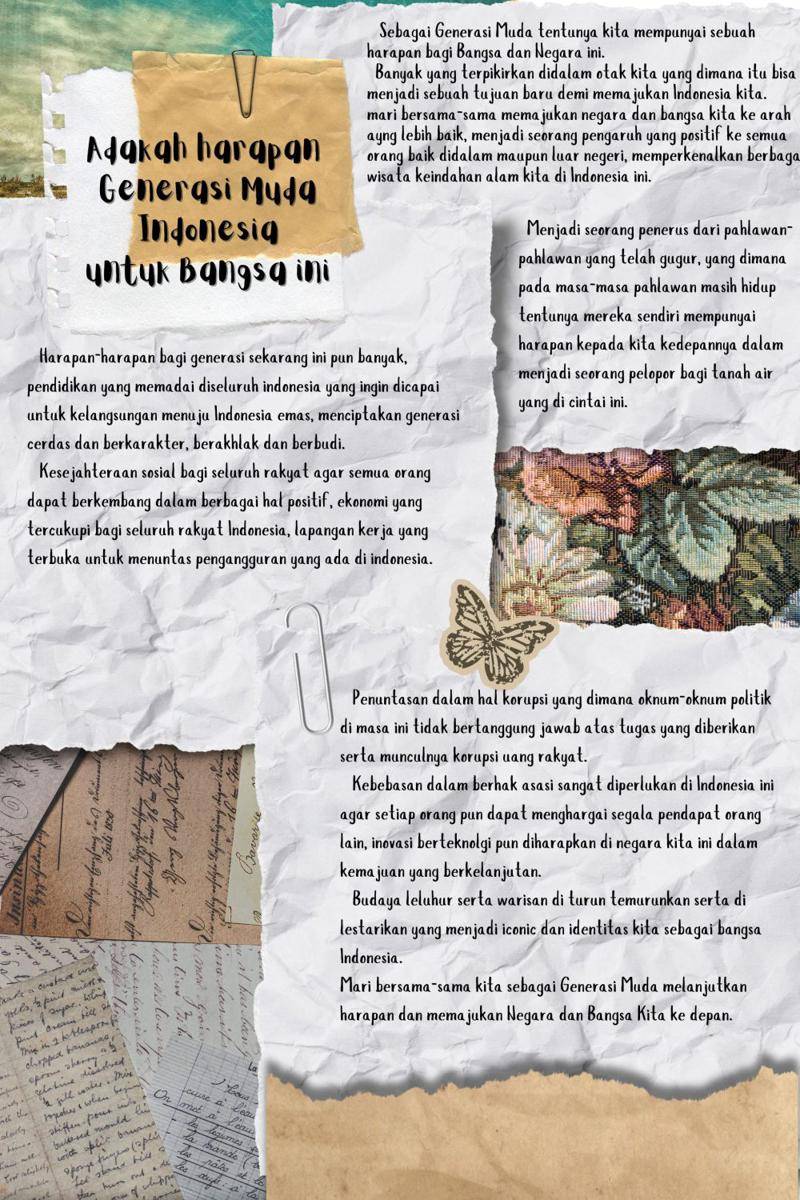 Adakah harapan
Generasi Muda
Indonesia
untuk Bangsa ini
Sebagai Generasi Muda tentunya kita mempunyai sebuah
harapan bagi Bangsa dan Negara ini.
Banyak yang terpikirkan didalam otak kita yang dimana itu bisa
menjadi sebuah tujuan baru demi memajukan Indonesia kita.
mari bersama-sama memajukan negara dan bangsa kita ke arah
ayng lebih baik, menjadi seorang pengaruh yang positif ke semua
orang baik didalam maupun luar negeri, memperkenalkan berbaga
wisata keindahan alam kita di Indonesia ini.
Menjadi seorang penerus dari pahlawan-
pahlawan yang telah gugur, yang dimana
pada masa-masa pahlawan masih hidup
tentunya mereka sendiri mempunyai
harapan kepada kita kedepannya dalam
menjadi seorang pelopor bagi tanah air
yang di cintai ini.
Harapan-harapan bagi generasi sekarang ini pun banyak,
pendidikan yang memadai diseluruh indonesia yang ingin dicapai
untuk kelangsungan menuju Indonesia emas, menciptakan generasi
cerdas dan berkarakter, berakhlak dan berbudi.
Kesejahteraan sosial bagi seluruh rakyat agar semua orang
dapat berkembang dalam berbagai hal positif, ekonomi yang
tercukupi bagi seluruh rakyat Indonesia, lapangan kerja yang
terbuka untuk menuntas pengangguran yang ada di indonesia.
Penuntasan dalam hal korupsi yang dimana oknum-oknum politik
di masa ini tidak bertanggung jawab atas tugas yang diberikan
serta munculnya korupsi uang rakyat.
Kebebasan dalam berhak asasi sangat diperlukan di Indonesia ini
agar setiap orang pun dapat menghargai segala pendapat orang
lain, inovasi berteknolgi pun diharapkan di negara kita ini dalam
kemajuan yang berkelanjutan.
Budaya leluhur serta warisan di turun temurunkan serta di
lestarikan yang menjadi iconic dan identitas kita sebagai bangsa
Indonesia.
Mari bersama-sama kita sebagai Generasi Muda melanjutkan
harapan dan memajukan Negara dan Bangsa Kita ke depan.